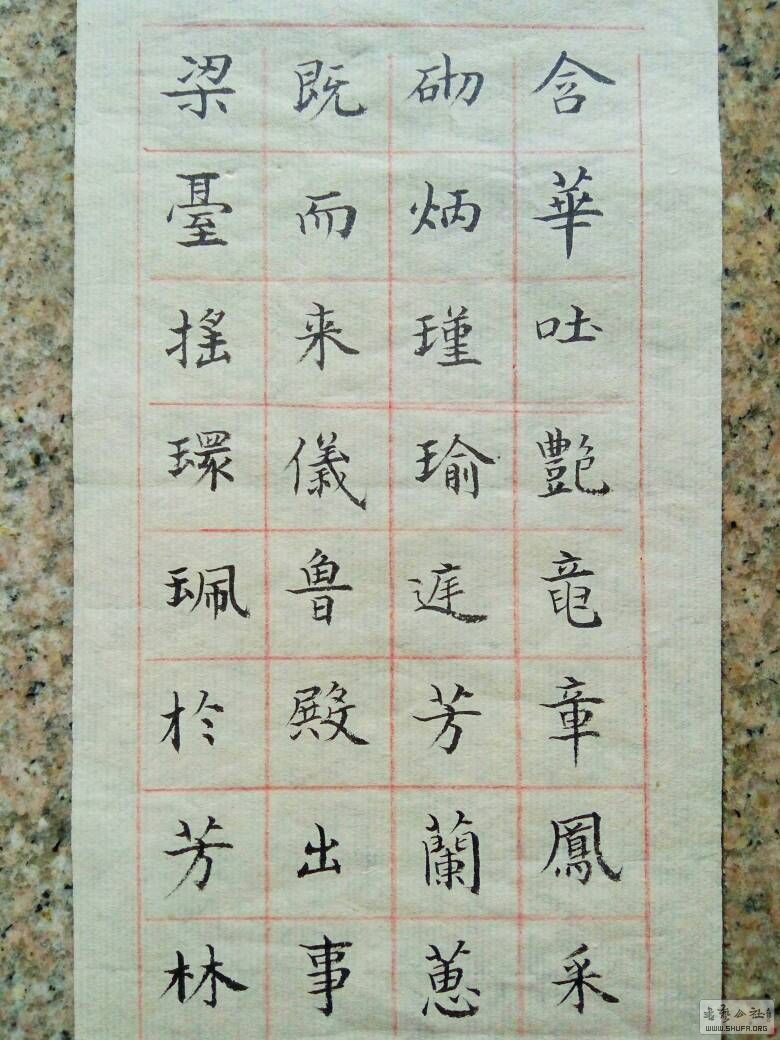 含華吐艷竜章鳳采
砌炳瑾瑜庭芳蘭蕙
既而来儀魯殿出事
梁臺搖環珮於芳林
書藝公社
WWW.SHUFA.ORG